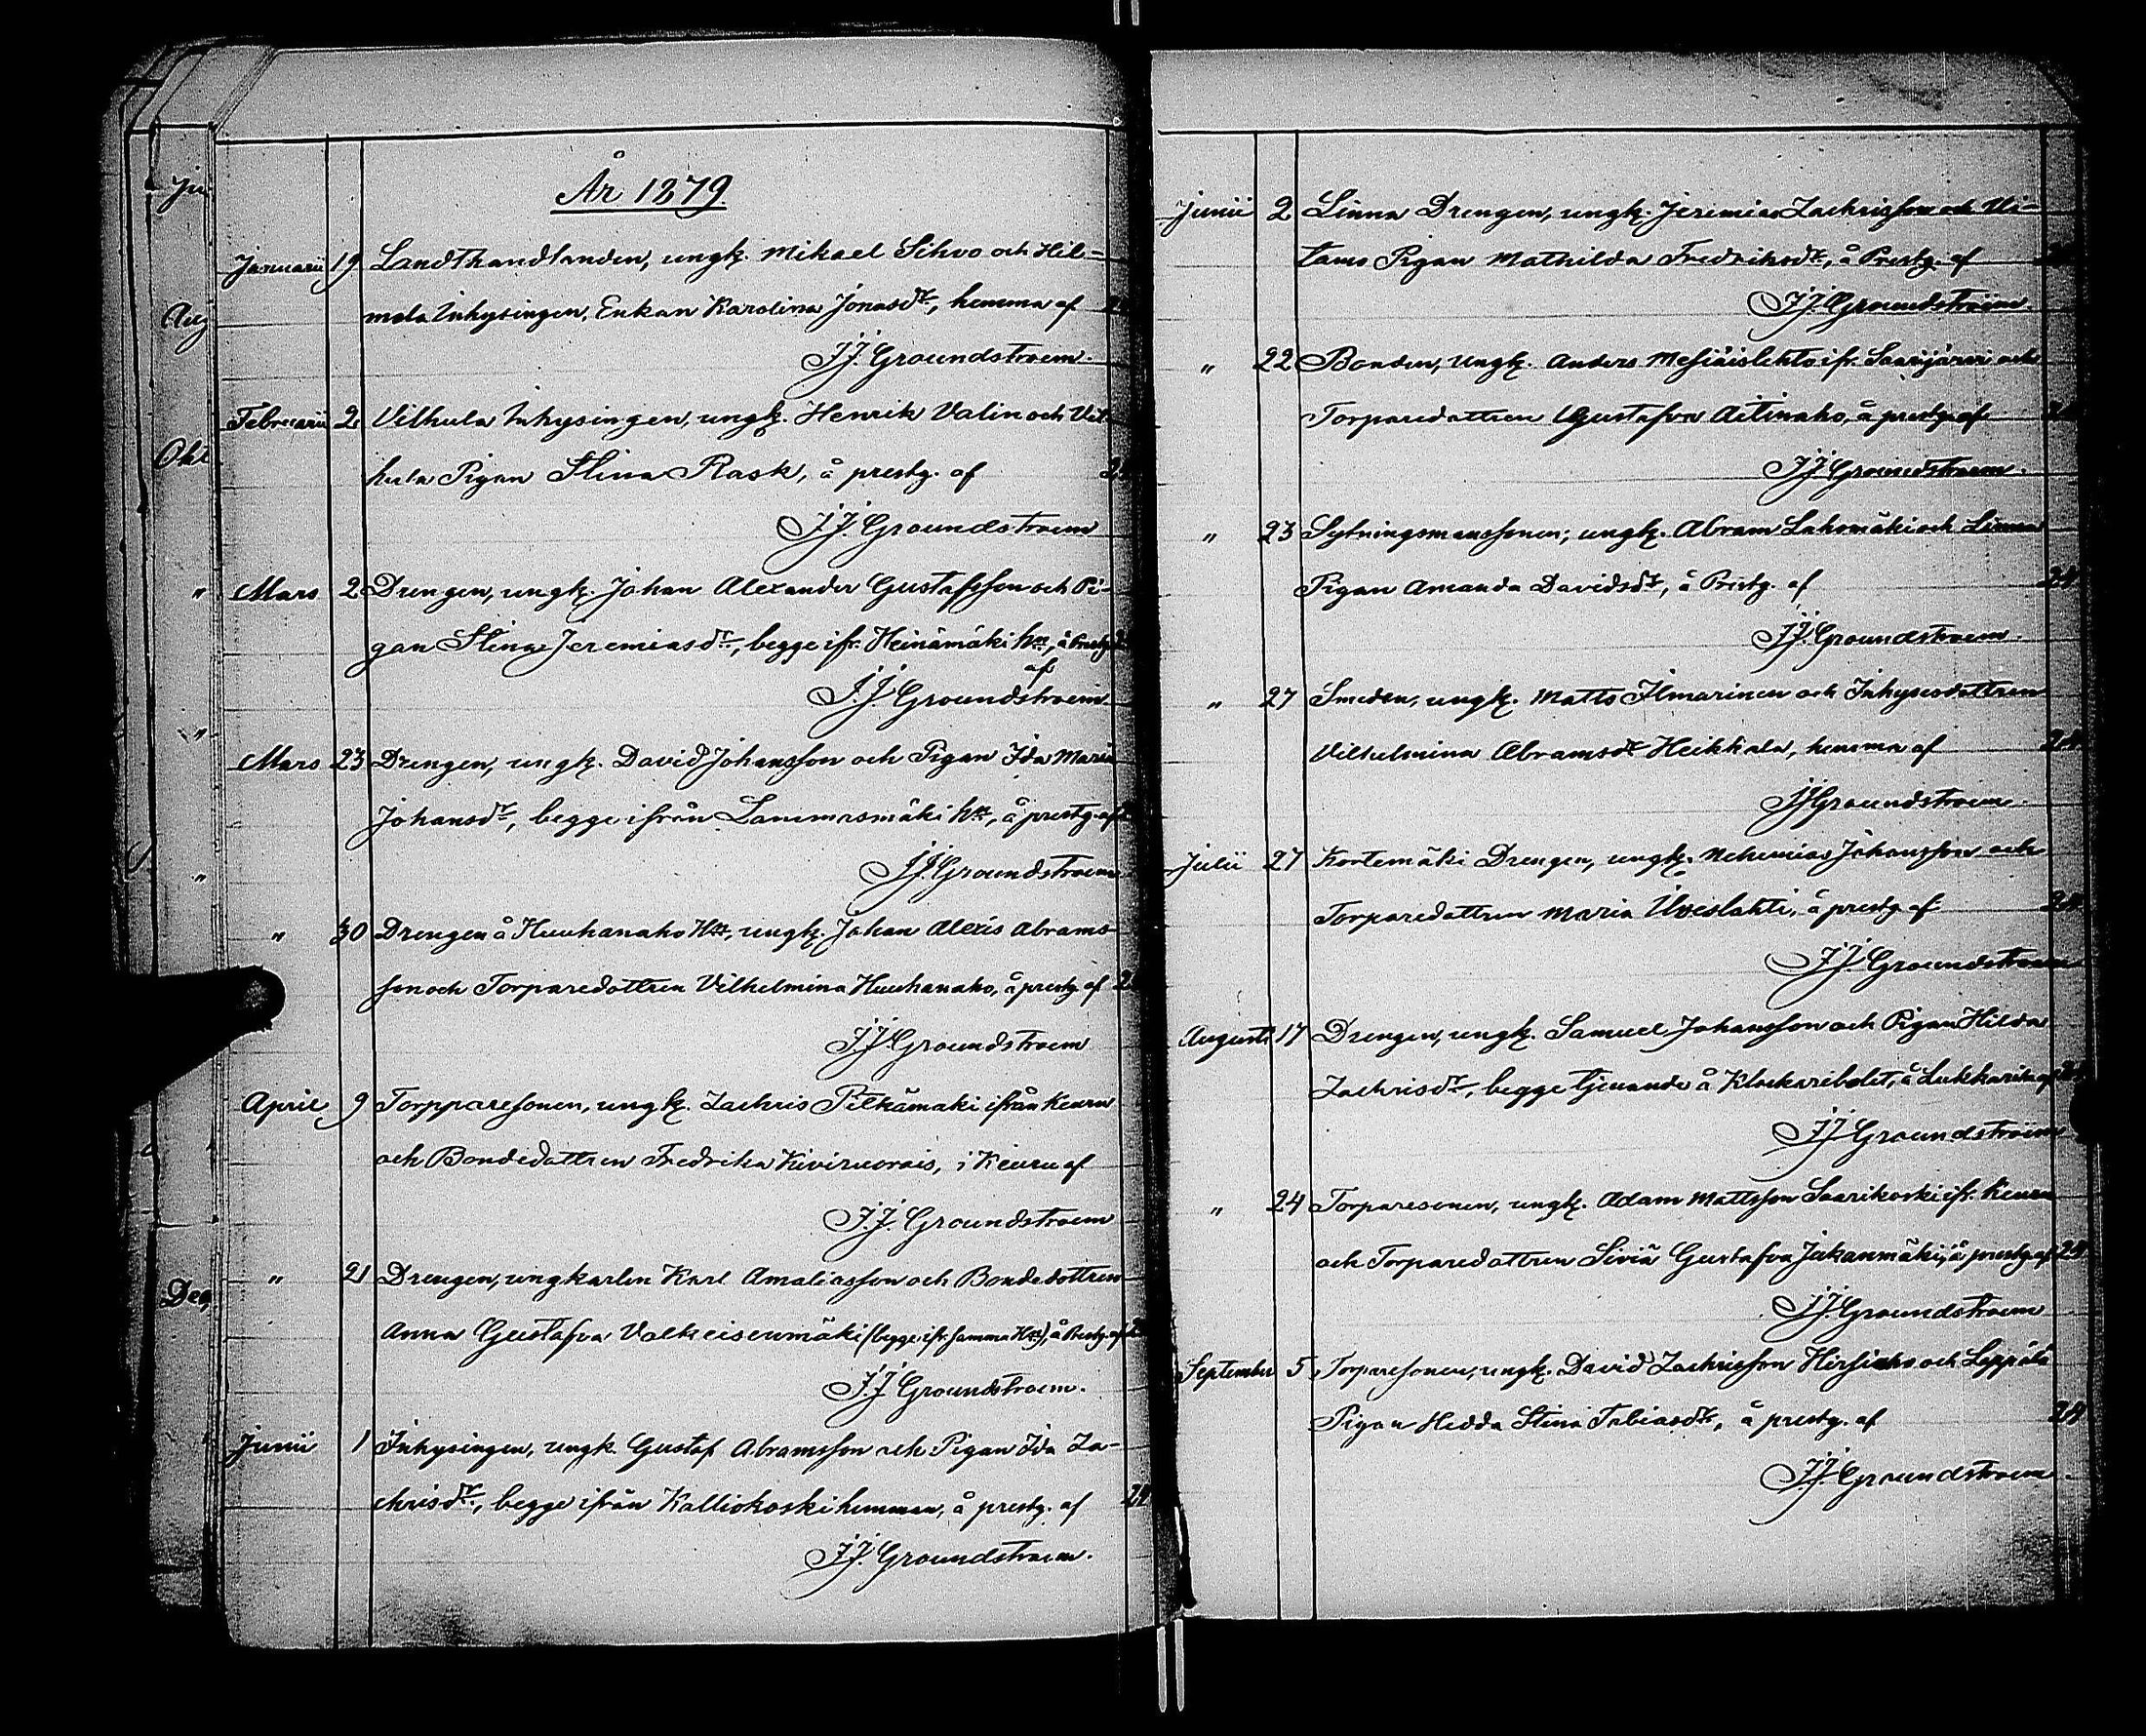 År 1879.
Januarii 19 Landthandlanden, ungk. Mikael Sihvo och Hil-
mola Inhysingen, Enkan Karolina Jonasdr, hemma af
J.J. Groundstroem.
Februarii 2 Vilhula Inhysingen, ungk. Henrik Valin och Vil
hula Pigan Stina Rask, å prestg. af
J.J. Groundstroem
Mars 2 Drengen, ungk. Johan Alexander Gustafsson och Pi-
gan Stina Jeremiasdr, begge ifr. Heinämäki hn, å Prestg.
af
J.J. Groundstroem.
Mars 23 Drengen, ungk. David Johansson och Pigan Ida Maria
Johansdr, begge ifrån Lammasmäki hn, å prestg. af
J.J. Groundstroem
" 30 Drengen å Huuhanaho Hn, ungk. Johan Alexis Abrams-
son och Torparedottren Vilhelmina Huuhanaho, å prestg. af
J.J. Groundstroem
April 9 Torpparesonen, ungk. Zachris Pilkämäki ifrån Keuru
och Bondedottren Fredrika Kiviruorais, i Keuru af
J.J. Groundstroem
" 21 Drengen, ungkarlen Karl Amaliasson och Bondedottren
Anna Gustafva Valkeisenmäki (begge ifr. samma Hn), å Prestg. af
J.J. Groundstroem.
Junii 1 Inhysingen, ungk. Gustaf Abramsson och Pigan Ida Za-
chrisdr, begge ifrån Kalliokoski hemman, å prestg. af 24
J.J. Groundstroem.
Junii 2 Linna Drengen, ungk. Jeremias Zachrisson och Ui-
tamo Pigan Mathilda Fredriksdr, å Prestg. af
J.J. Groundstroem.
" 22 Bonden, Ungk. Anders Mesiäislehto ifr. Saarijärvi och
Torparedottren Gustafva Aitinaho, å prestg. af
J.J. Groundstroem.
" 23 Sytningsmanssonen, ungk. Abram Lahomäki och Linna
Pigan Amanda Davidsdr, å Prestg. af 24
J.J. Groundstroem.
" 27 Smeden, ungk. Matts Ilmarinen och Inhysesdottren
Vilhelmina Abramsdr Heikkala, hemma af 24
J.J. Groundstroem.
Julii 27 Kortemäki Drengen, ungk. Nehemias Johansson och
Torparedottren Maria Uveslahti, å prestg. af 24
J.J. Groundstroem
Augusti 17 Drengen, ungk. Samuel Johansson och Pigan Hilda
Zachrisdr, begge tjenande å Klockaribolet, å Lukkarila af
J.J. Groundstroem
" 24 Torparesonen, ungk. Adam Mattsson Saarikoski ifr. Keuru
och Torparedottren Siviä Gustafva Jukanmäki, å prestg. af 24
J.J. Groundstroem
September 5 Torparesonen, ungk. David Zachrisson Hirsiaho och Leppälä
Pigan Hedda Stina Tobiasdr, å prestg. af 24
J.J. Groundstroem.